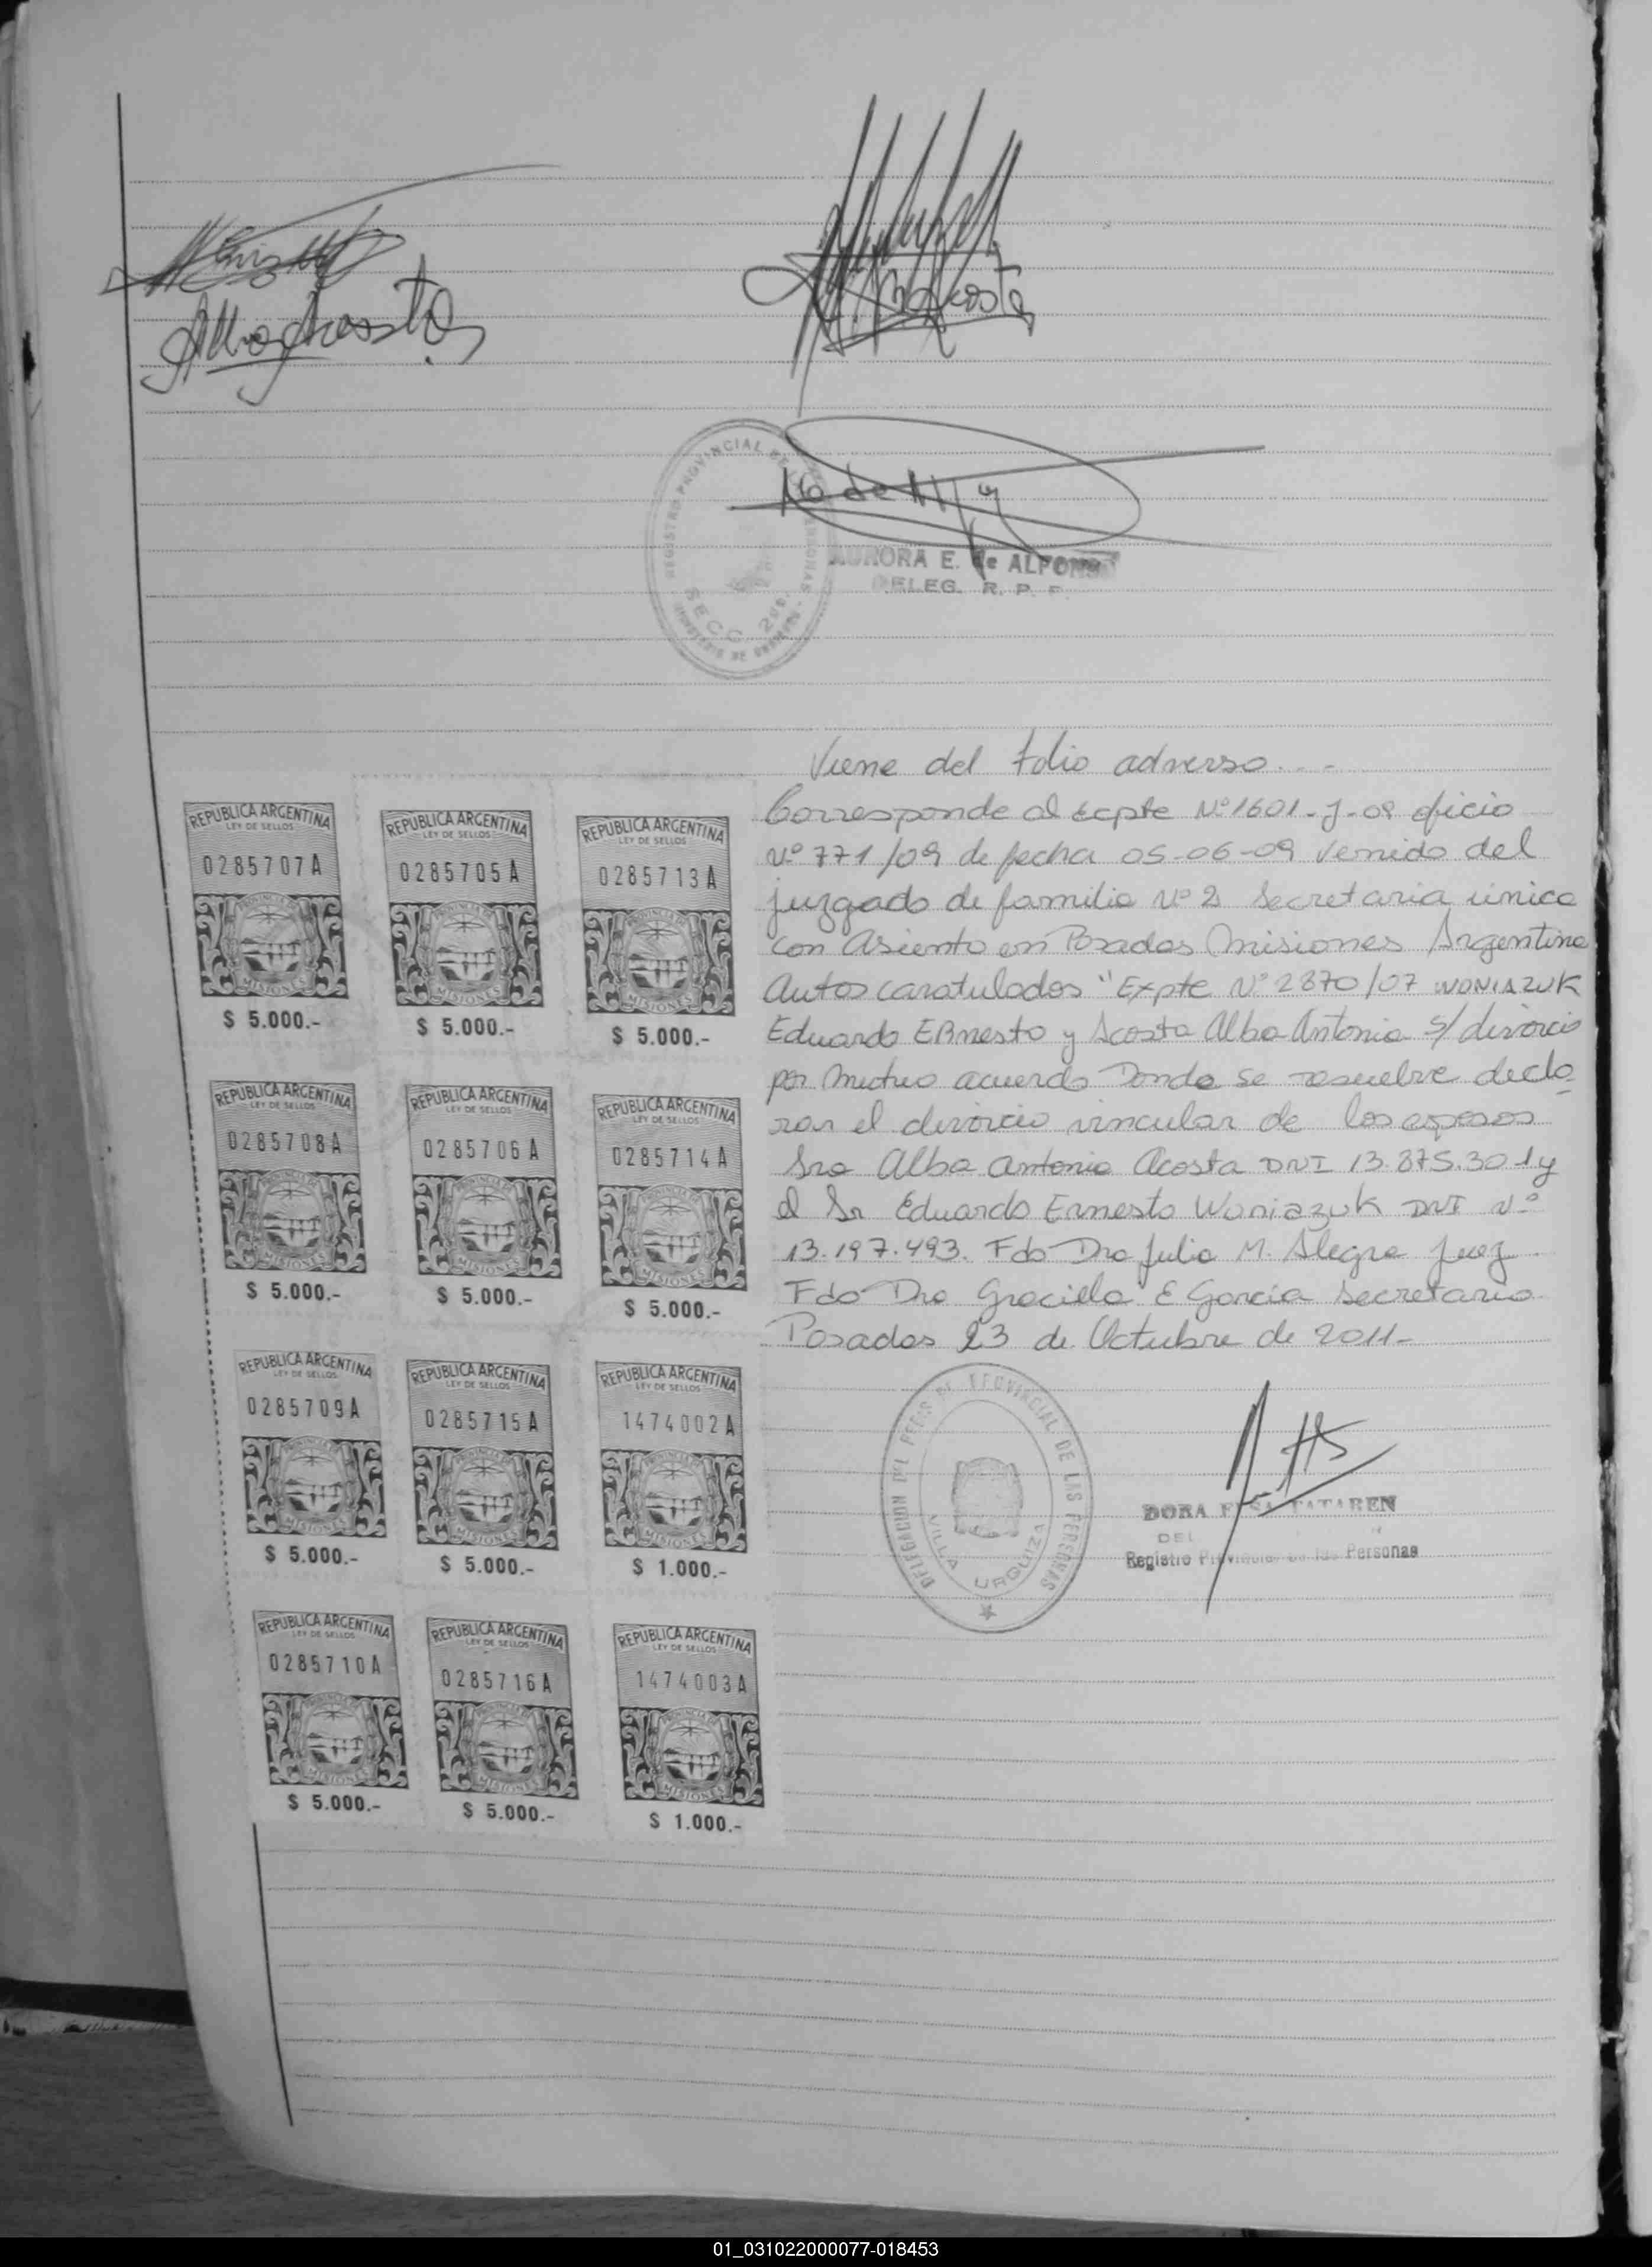 Alba Acosta
REGISTRO PROVINCIAL DE
SECC. 2da.
AURORA E. de ALFONSO
DELEG. R. P. P.
Viene del folio adverso....
Corresponde al Ecpte Nº1601-J-09 oficio
Nº 771/09 de fecha 05-06-09 venido del
juzgado de familia Nº 2 Secretaria única
con Asiento en Posadas Misiones Argentina
Autos caratulados "Expte Nº 2870/07 WONIAZUK
Eduardo ERnesto y Acosta Alba Antonia S/divorcio
por Mutuo acuerdo Donde se resuelve decla
rar el divorcio vincular de los esposos
Sra Alba Antonia Acosta DNI 13.875.301 y
el Sr Eduardo Ernesto Woniazuk DNI Nº
13.197.493. Fdo Dra Julia M. Alegre Juez
Fdo Dra Graciela E Garcia Secretaria
Posadas 23 de Octubre de 2011-
DELEGACION DEL REGISTRO PROVINCIAL DE LAS PERSONAS
VILLA URQUIZA
DORA ELSA TATAREN
Registro Provincial de las Personas
REPUBLICA ARGENTINA REPUBLICA ARGENTINA REPUBLICA ARGENTINA
LEY DE SELLOS LEY DE SELLOS LEY DE SELLOS
0285707A 0285705A 0285713A
MISIONES MISIONES MISIONES
$ 5.000.- $ 5.000.- $ 5.000.-
REPUBLICA ARGENTINA REPUBLICA ARGENTINA REPUBLICA ARGENTINA
LEY DE SELLOS LEY DE SELLOS LEY DE SELLOS
0285708A 0285706A 0285714A
MISIONES MISIONES MISIONES
$ 5.000.- $ 5.000.- $ 5.000.-
REPUBLICA ARGENTINA REPUBLICA ARGENTINA REPUBLICA ARGENTINA
LEY DE SELLOS LEY DE SELLOS LEY DE SELLOS
0285709A 0285715A 1474002A
MISIONES MISIONES MISIONES
$ 5.000.- $ 5.000.- $ 1.000.-
REPUBLICA ARGENTINA REPUBLICA ARGENTINA REPUBLICA ARGENTINA
LEY DE SELLOS LEY DE SELLOS LEY DE SELLOS
0285710A 0285716A 1474003A
MISIONES MISIONES MISIONES
$ 5.000.- $ 5.000.- $ 1.000.-
01_031022000077-018453